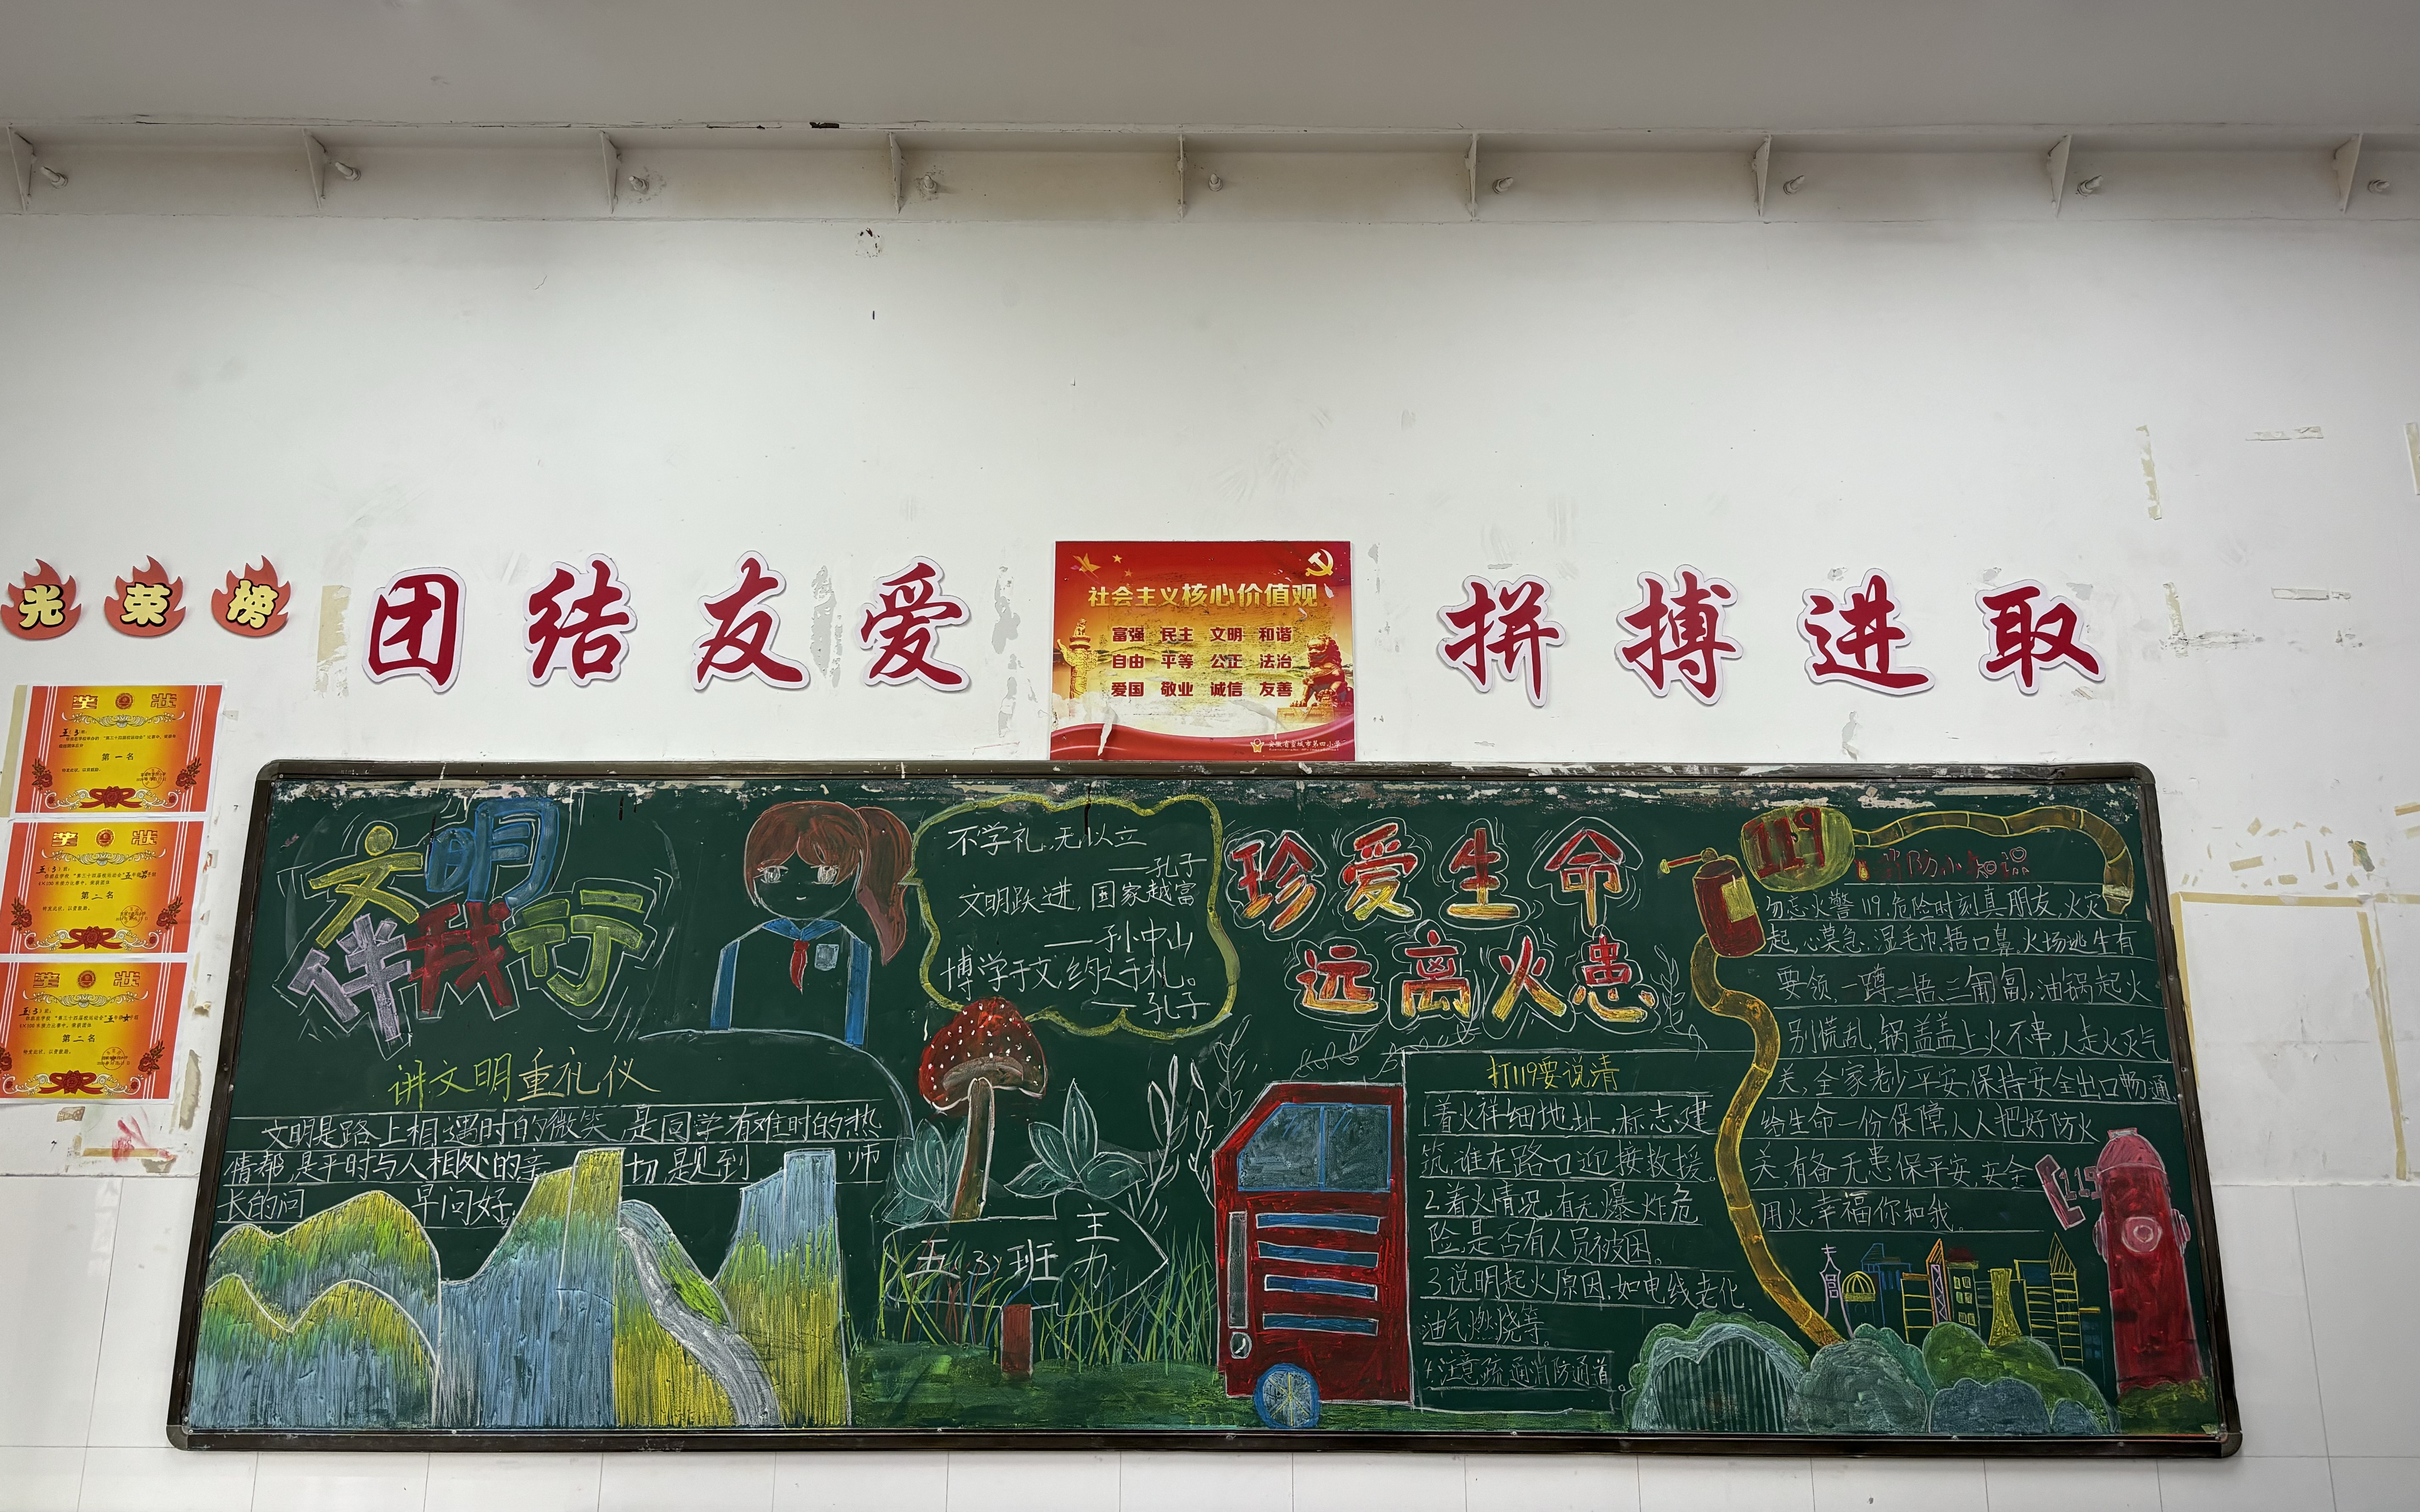 光荣榜
团结友爱
社会主义核心价值观
富强 民主 文明 和谐
自由 平等 公正 法治
爱国 敬业 诚信 友善
安徽省宣城市第四小学
拼搏进取
奖状
五(3)班:
第一名
特发此状,以资鼓励。
奖状
五(3)班:
第二名
特发此状,以资鼓励。
奖状
五(3)班:
第二名
特发此状,以资鼓励。
文明
伴我行
讲文明重礼仪
文明是路上相遇时的微笑 是同学有难时的热
情帮,是平时与人相处的亲 切,是见到 师
长的问 早问好。
不学礼,无以立
——孔子
文明跃进,国家越富
——孙中山
博学于文,约之于礼。
——孔子
五(3)班
主力
珍爱生命
远离火患
打119要说清
1.着火祥细地址,标志建
筑,谁在路口迎接救援。
2.着火情况,有无爆炸危
险,是否有人员被困。
3.说明起火原因,如电线老化、
油气燃烧等。
4.注意疏通消防通道。
119
消防小知识
勿忘火警119,危险时刻真朋友,火灾
起,心莫急,湿毛巾,捂口鼻,火场逃生有
要领,一蹲二捂三匍匐,油锅起火
别慌乱,锅盖盖上火不串,人走火灭气
关,全家老少平安,保持安全出口畅通
给生命一份保障,人人把好防火
关,有备无患保平安,安全
用火,幸福你和我。
119